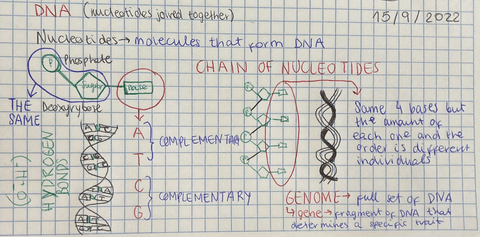 DNA (nucleotides joined together)
15/9/2022
Nucleotides → molecules that form DNA
P Phosphate
CHAIN OF NUCLEOTIDES
THE SAME
Deoxyrybose
HYDROGEN BONDS
(O⁻-H⁺)
A
T
COMPLEMENTARY
C
G
COMPLEMENTARY
Same 4 bases but
the amount of
each one and the
order is different
individuals
GENOME → full set of DNA
↳ gene → fragment of DNA that
determines a specific trait